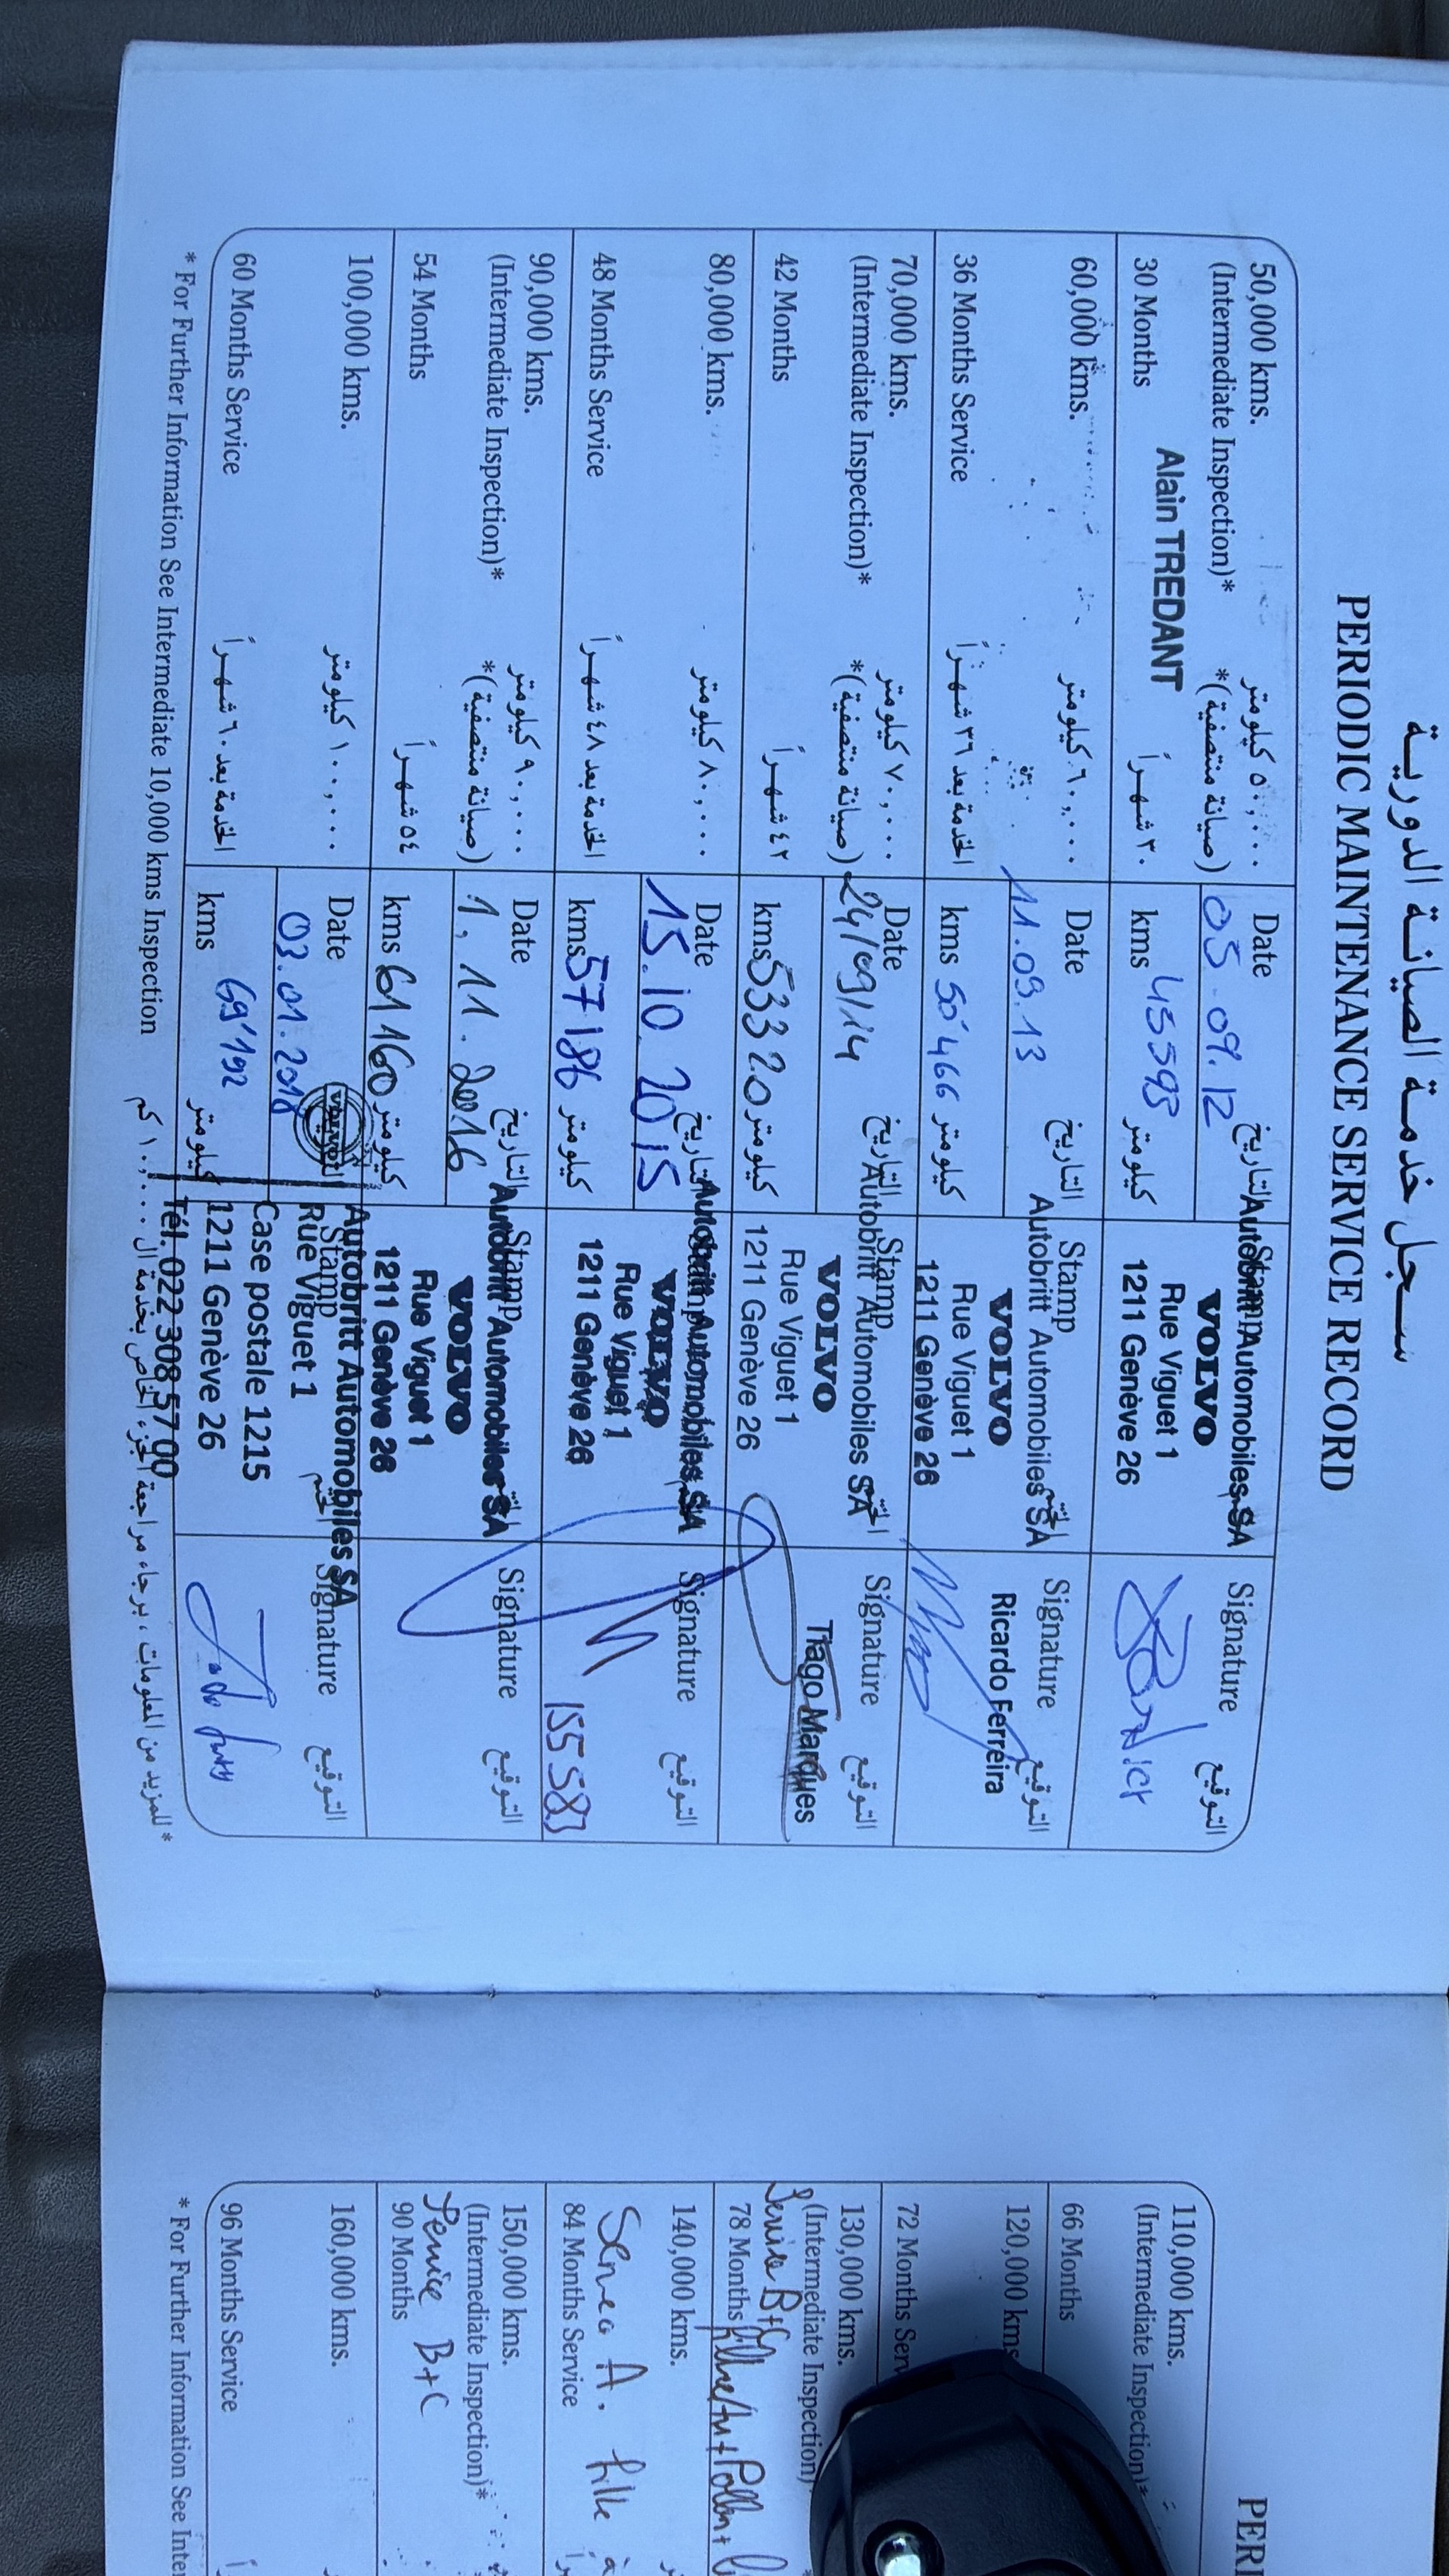 سـجل خدمـة الصيانـة الدوريـة
PERIODIC MAINTENANCE SERVICE RECORD
50,000 kms. ٥٠,٠٠٠ كيلومتر
(Intermediate Inspection)* (صيانة منتصفية)*
30 Months ٣٠ شهـراً
Alain TREDANT
Date التاريخ
05.09.12
kms 45595 كيلومتر
Stamp
Autobritt Automobiles SA
VOLVO
Rue Viguet 1
1211 Genève 26
Signature التوقيع
60,000 kms. ٦٠,٠٠٠ كيلومتر
36 Months Service الخدمة بعد ٣٦ شهـراً
Date التاريخ
11.09.13
kms 50'466 كيلومتر
Stamp الختم
Autobritt Automobiles SA
VOLVO
Rue Viguet 1
1211 Genève 26
Signature التوقيع
Ricardo Ferreira
70,000 kms. ٧٠,٠٠٠ كيلومتر
(Intermediate Inspection)* (صيانة منتصفية)*
42 Months ٤٢ شهـراً
Date التاريخ
24/09/14
kms 53320 كيلومتر
Stamp الختم
Autobritt Automobiles SA
VOLVO
Rue Viguet 1
1211 Genève 26
Signature التوقيع
Tiago Marques
80,000 kms. ٨٠,٠٠٠ كيلومتر
48 Months Service الخدمة بعد ٤٨ شهـراً
Date التاريخ
15.10.2015
kms 57186 كيلومتر
Autobritt Automobiles SA
VOLVO
Rue Viguet 1
1211 Genève 26
Signature التوقيع
155583
90,000 kms. ٩٠,٠٠٠ كيلومتر
(Intermediate Inspection)* (صيانة منتصفية)*
54 Months ٥٤ شهـراً
Date التاريخ
1.11.2016
kms 61160 كيلومتر
Stamp
Autobritt Automobiles SA
VOLVO
Rue Viguet 1
1211 Genève 26
Signature التوقيع
100,000 kms. ١٠٠,٠٠٠ كيلومتر
60 Months Service الخدمة بعد ٦٠ شهـراً
Date التاريخ
03.01.2018
kms 69'192 كيلومتر
VOLVO
Stamp الختم
Autobritt Automobiles SA
Rue Viguet 1
Case postale 1215
1211 Genève 26
Tél. 022 308 57 00
Signature التوقيع
* For Further Information See Intermediate 10,000 kms Inspection
* للمزيد من المعلومات ، برجاء مراجعة الجزء الخاص بخدمة ال ١٠,٠٠٠ كم
PERI
110,000 kms.
(Intermediate Inspection)*
66 Months
120,000 kms
72 Months Serv
130,000 kms.
(Intermediate Inspection)
Service B+C
78 Months
140,000 kms.
Service A.
84 Months Service
150,000 kms.
(Intermediate Inspection)*
Service B+C
90 Months
160,000 kms.
96 Months Service
* For Further Information See Inter